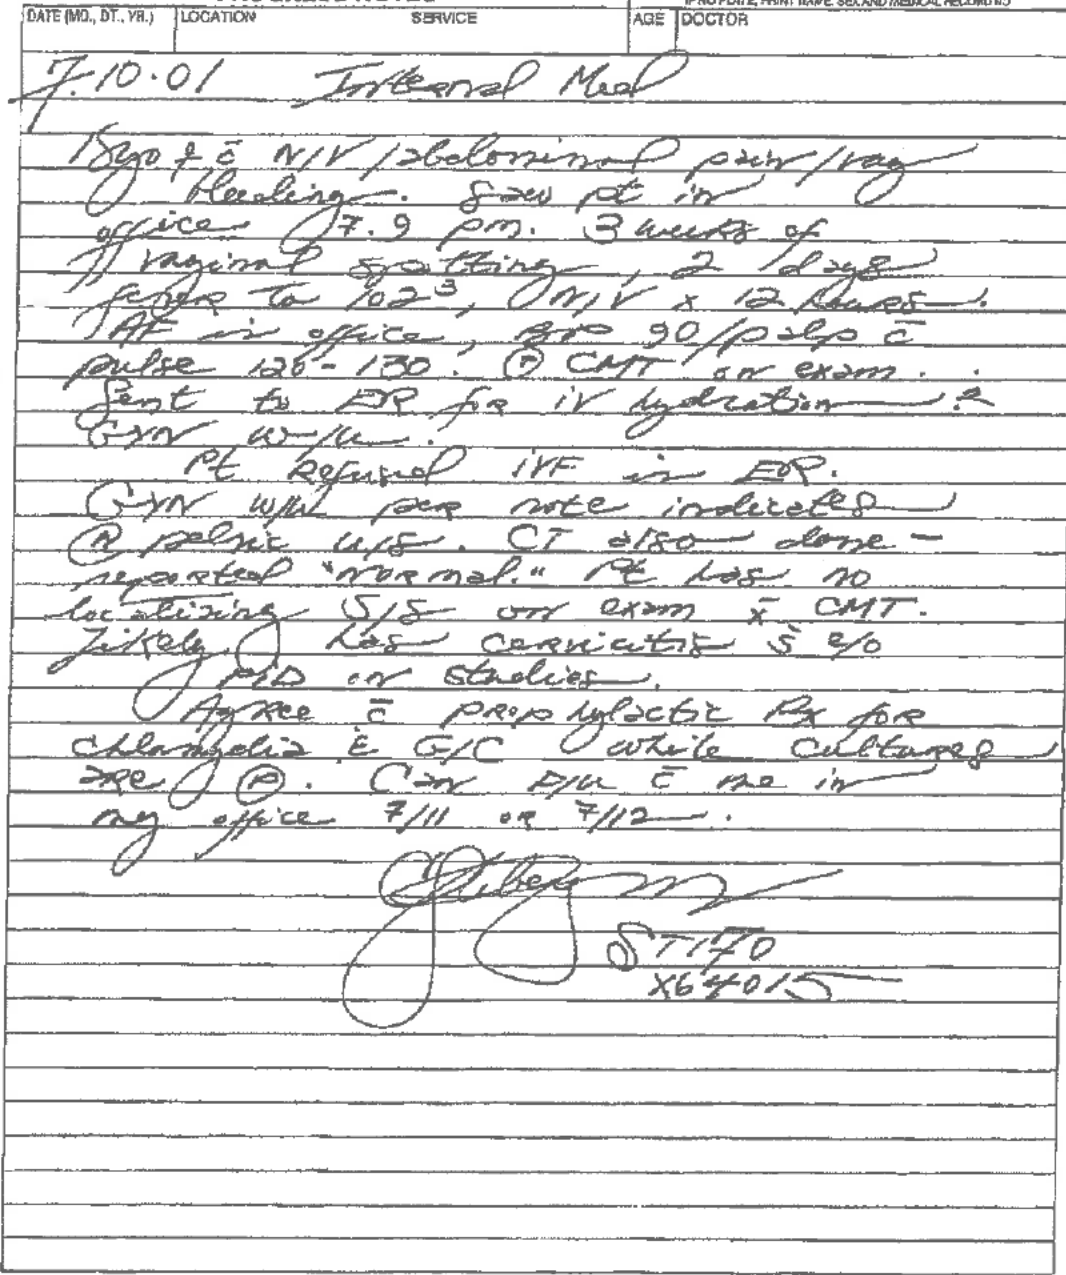 PROGRESS NOTES
IF NO PLATE, PRINT NAME, SEX AND MEDICAL RECORD NO
DATE (MO., DT., YR.) LOCATION SERVICE AGE DOCTOR
7.10.01 Internal Med
18yo ♀ c̄ N/V/abdominal pain/vag
bleeding. Saw pt in
office 7.9 pm. 3 weeks of
vaginal spotting, 2 days
fever to 102³, N/V x 12 hours.
AF in office, 90/palp c̄
pulse 120-130. CMT on exam.
Sent to ER for IV hydration &
GYN w/u.
Pt Refused IVF in ER.
GYN w/u per note indicates
pelvic u/s. CT also done -
reported "normal." Pt has no
localizing S/S on exam x̄ CMT.
Likely has cervicitis s̄ e/o
PID on studies.
Agree c̄ prophylactic Rx for
chlamydia & G/C while cultures
are Ⓟ. Can F/u c̄ me in
my office 7/11 or 7/12.
X64015